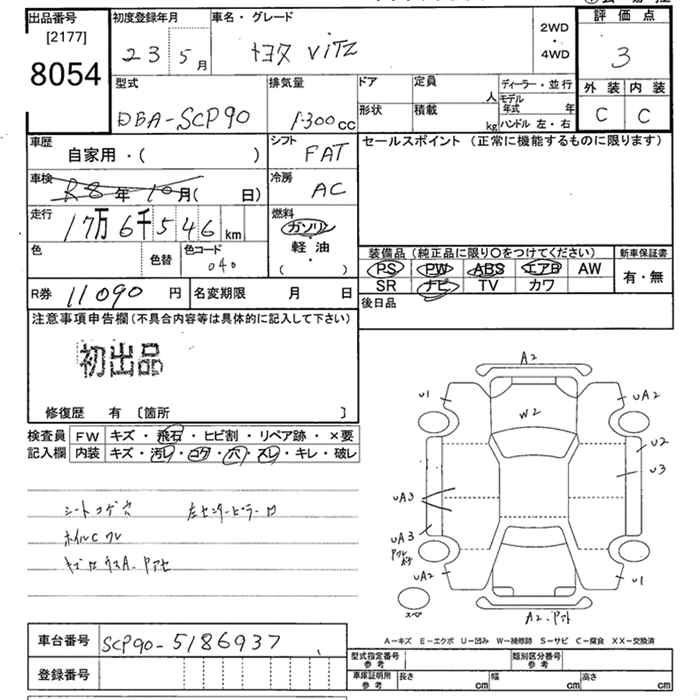 出品番号 初度登録年月 車名・グレード 評価点
[2177] 23 5月 トヨタ VITZ 2WD・4WD 3
8054 型式 排気量 ドア 定員 人 ディーラー・並行 外装 内装
DBA-SCP90 1300cc 形状 積載 kg モデル年式 年 ハンドル 左・右 C C
車歴 自家用・( ) シフト FAT セールスポイント(正常に機能するものに限ります)
車検 R8年10月( 日) 冷房 AC
走行 17万6千546km 燃料 ガソリン
軽・油
( ・ )
色 色替 色コード 040 装備品(純正品に限り〇をつけてください) 新車保証書
PS PW ABS エアB AW 有・無
SR ナビ TV カワ
R券 11090円 名変期限 月 日 後日品
注意事項申告欄(不具合内容等は具体的に記入して下さい)
初出品
修復歴 有 [箇所 ]
検査員 FW キズ・飛石・ヒビ割・リペア跡・×要
記入欄 内装 キズ・汚レ・コゲ・穴・スレ・キレ・破レ
シートコゲ穴
ホイルC
A2
U1
UA2
W2
U2
U3
UA3
UA3
UA2
U1
スペア
A2
A-キズ E-エクボ U-凹み W-補修跡 S-サビ C-腐食 XX-交換済
車台番号 SCP90-5186937
登録番号
型式指定番号 参考 類別区分番号 参考
車庫証明所 参考 長さ cm 幅 cm 高さ cm